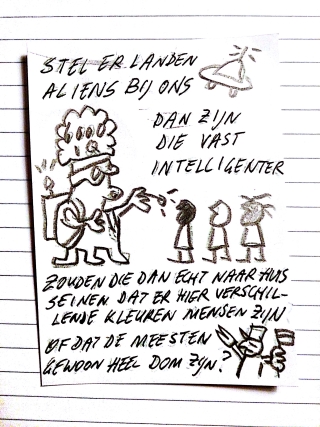 STEL ER LANDEN
ALIENS BIJ ONS
DAN ZIJN
DIE VAST
INTELLIGENTER
ZOUDEN DIE DAN ECHT NAAR HUIS
SEINEN DAT ER HIER VERSCHIL-
LENDE KLEUREN MENSEN ZIJN
OF DAT DE MEESTEN
GEWOON HEEL DOM ZIJN?